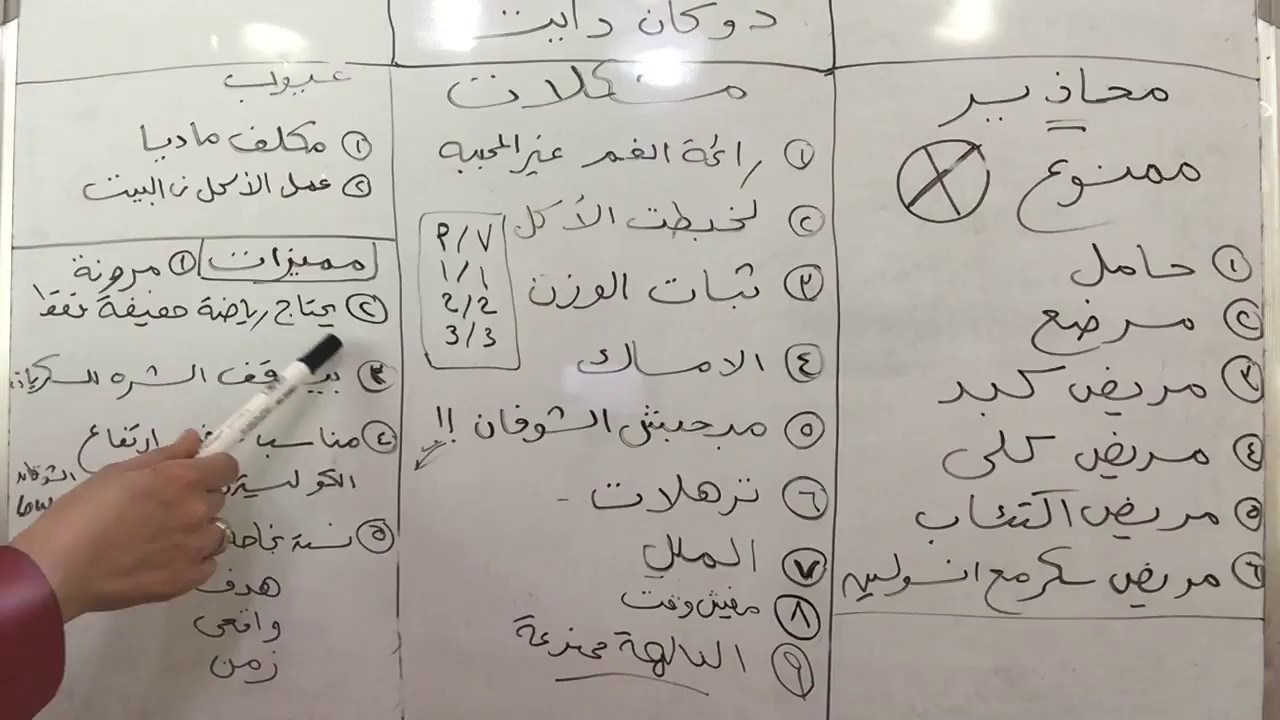 دوكان دايت
محاذير
ممنوع
١ حامل
٢ مرضع
٣ مريض كبد
٤ مريض كلى
٥ مريض اكتئاب
٦ مريض سكر مع انسولين
مشكلات
١ رائحة الفم غير المحببه
٢ لخبطت الأكل
٣ ثبات الوزن
٤ الامساك
٥ مبحبش الشوفان !!
٦ ترهلات -
٧ الملل
٨ مفيش وقت
٩ النالهة
٩/٧
1/1
2/2
3/3
عيوب
١ مكلف ماديا
٢ عمل الأكل في البيت
مميزات ١ مرونة
٢ يحتاج رياضة خفيفة فقط
٣ الشره للسكريات
٤ مناسب ارتفاع
الشوفان
low
٥ نسبة نجاحه
هدف
واقعى
زمن